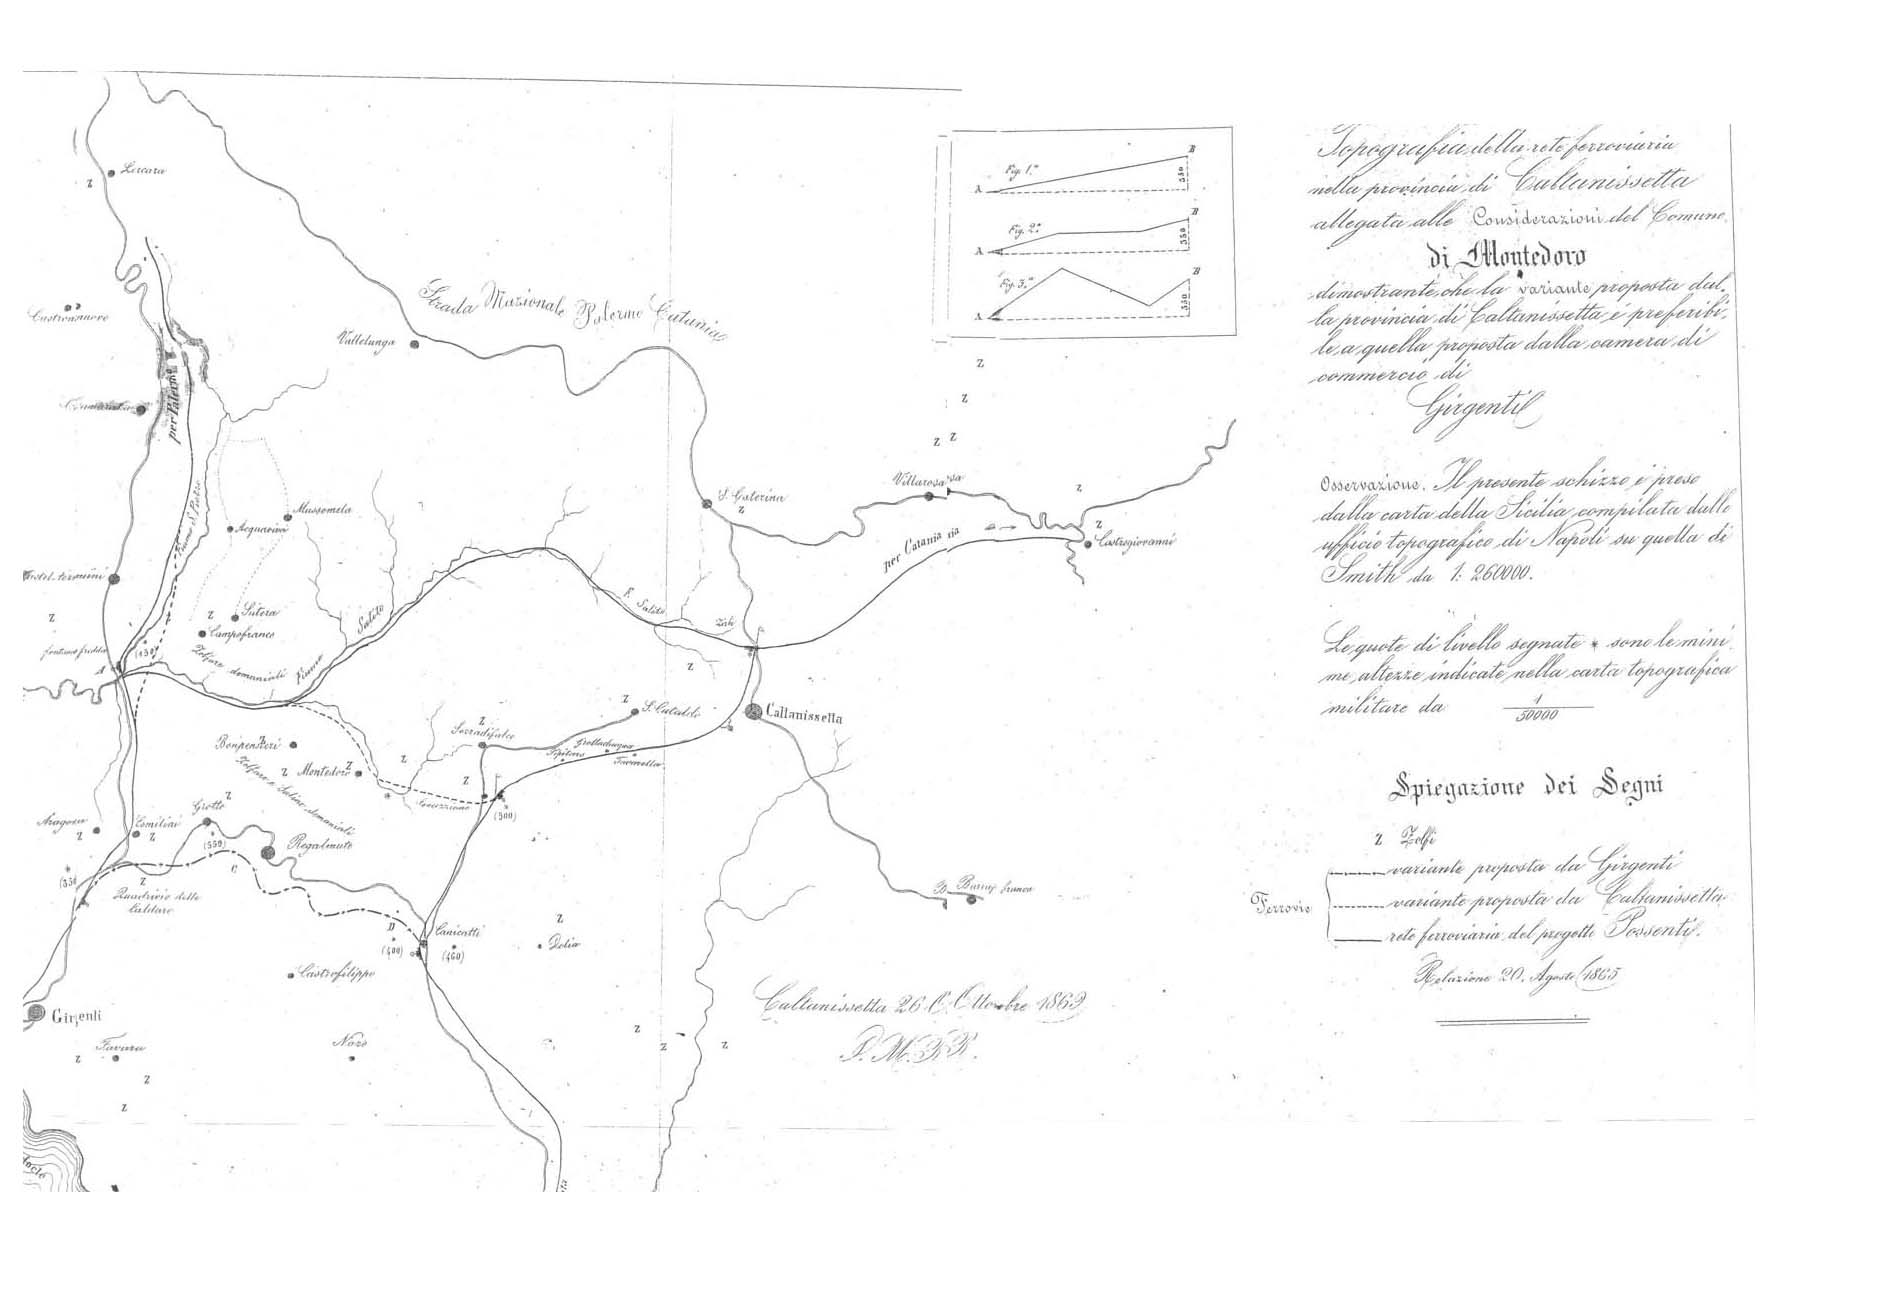 Topografia della rete ferroviaria
nella provincia di Caltanissetta
allegata alle Considerazioni del Comune
di Montedoro
dimostrante che la variante proposta dal-
la provincia di Caltanissetta è preferibi-
le a quella proposta dalla camera di
commercio di
Girgenti
Osservazione. Il presente schizzo è preso
dalla carta della Sicilia compilata dallo
ufficio topografico di Napoli su quella di
Smith da 1: 260000.
Le quote di livello segnate * sono le mini
me altezze indicate nella carta topografica
militare da 1/50000
Spiegazione dei Segni
Z Zolfi
Ferrovie
variante proposta da Girgenti
variante proposta da Caltanissetta
rete ferroviaria del progetto Possenti.
Relazione 20. Agosto 1865
Fig. 1.a
A
B
550
Fig. 2.a
A
B
550
Fig. 3.a
A
B
550
Lercara
Z
Castronuovo
Strada Nazionale Palermo Catania
Vallelunga
per Palermo
Z
Z
Z Z
S. Caterina
Z
Villarosa
Z
Z
Castrogiovanni
per Catania
Mussomela
Acquaviva
Fiume
Z
Sutera
Campofranco
Z
A
(150)
Zolfare demaniali
Fiume Salito
F. Salito
Z
Caltanissetta
S. Cataldo
Z
Serradifalco
Z
Grottacqua
Favarella
Bonpensieri
Z
Z Montedoro Z
Z
Zolfare e Saline demaniali
Z
(500)
Aragona
Z
Comitini
Z
Grotte
Z
(550)
Regalmuto
C
Z
Quadrivio delle
Caldare
D
(400)
Canicatti
(460)
Z
Delia
Castrofilippo
Girgenti
Favara
Z
Z
Z
Naro
Z
Z
Z
Caltanissetta 26 Ottobre 1869